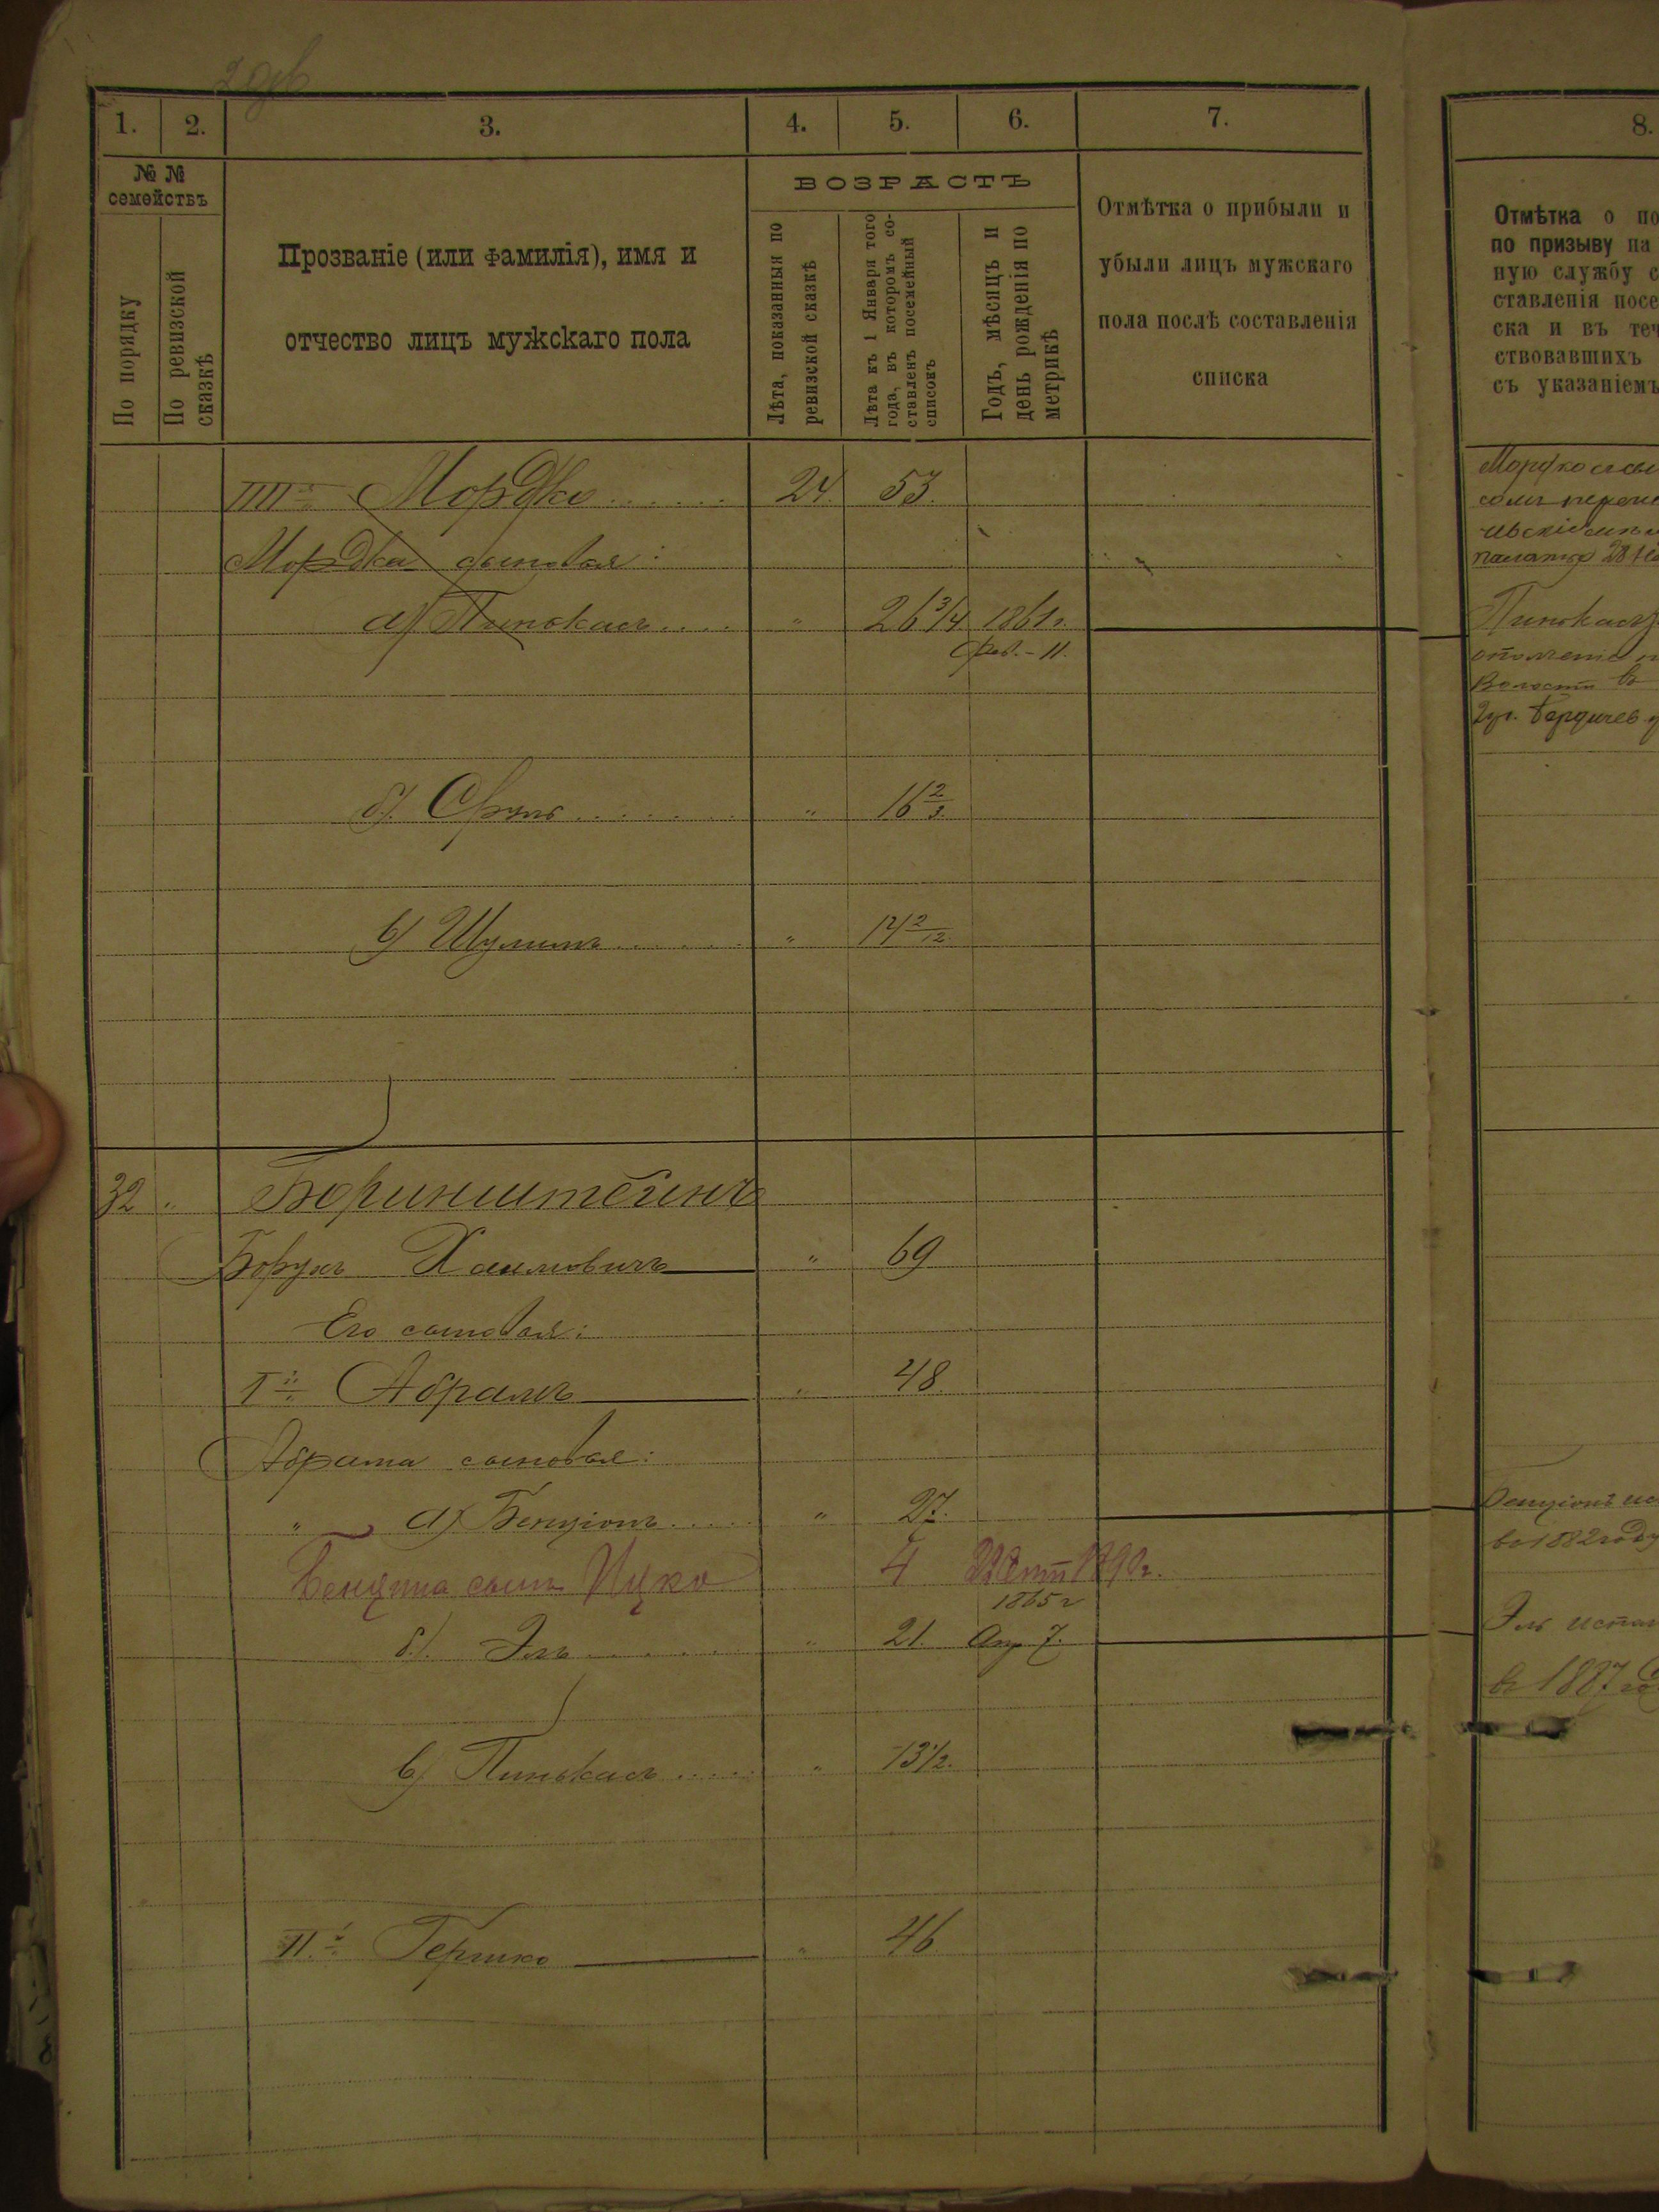 1. 2. 3. 4. 5. 6. 7.
№ №
семействъ
По порядку
По ревизской
сказкѣ
Прозваніе (или фамилія), имя и
отчество лицъ мужскаго пола
ВОЗРАСТЪ
Лѣта, показанныя по
ревизской сказкѣ
Лѣта къ 1 Января того
года, въ которомъ со-
ставленъ посемейный
списокъ
Годъ, мѣсяцъ и
день рожденія по
метрикѣ
Отмѣтка о прибыли и
убыли лицъ мужскаго
пола послѣ составленія
списка
IIIIй Мордко 24. 53.
Мордка сыновья:
а) Пинькасъ " 26 3/4 1861 г.
Фев. - 11.
б). Сруль " 16 2/3.
в) Шулимъ " 14 2/12.
32 " Боринштейнъ
Борухъ Хаимовичъ " 69
Его сыновья:
Iй Абрамъ " 48.
Абрама сыновья:
" а) Бенціонъ " 27.
сынъ Ицко 4 1890 г.
1865 г
б). Эль " 21. Апр 7.
в) Пинькасъ " 13 1/2.
II.й Гершко " 46
8.
Отмѣтка о по
по призыву на
ную службу с
ставленія посе
ска и въ теч
ствовавшихъ
съ указаніемъ
Мордко
28
Пинькасъ
Волости въ
Бердичев. у
Бенціонъ ис
въ 1882 году
Эль испол
въ 1887 го